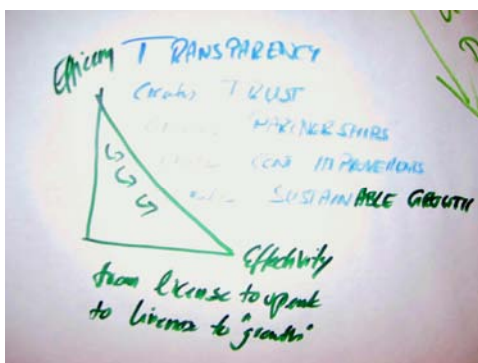 Efficency TRANSPARENCY
Creates TRUST
PARTNERSHIPS
CONT IMPROVEMENTS
SUSTAINABLE GROWTH
Effectivity
from license to operate
to license to "growth"